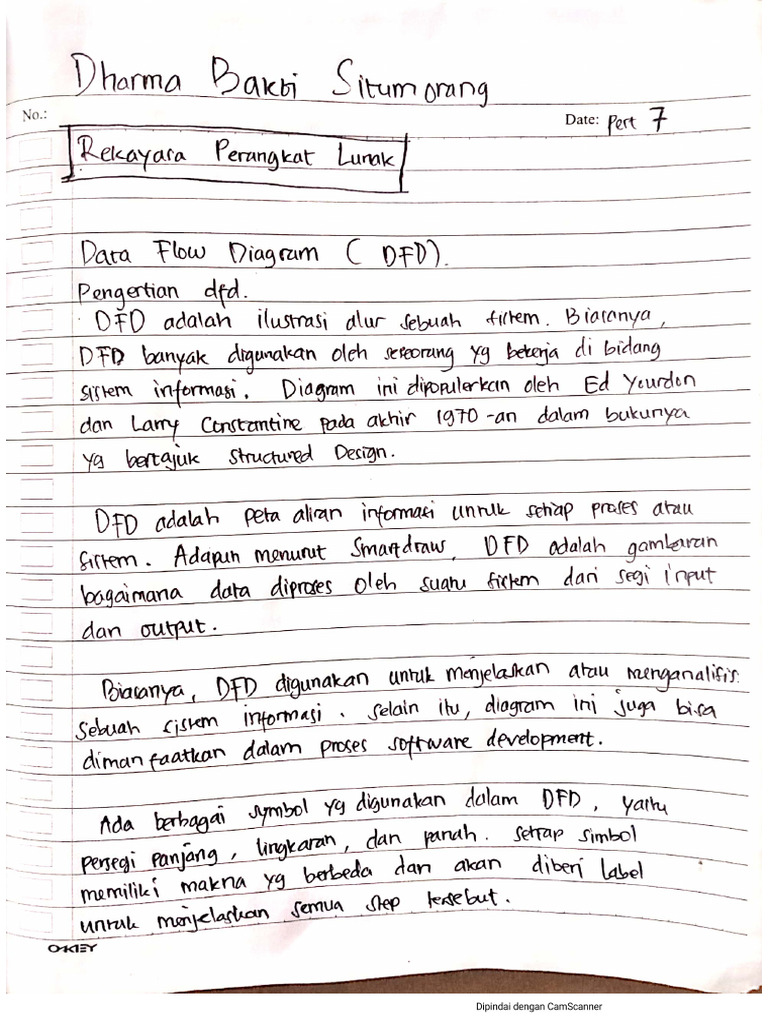 Dharma Bakti Situmorang
No.:
Date: Pert 7
Rekayasa Perangkat Lunak
Data Flow Diagram ( DFD).
Pengertian dfd.
DFD adalah ilustrasi alur sebuah sistem. Biasanya,
DFD banyak digunakan oleh seseorang yg bekerja di bidang
sistem informasi. Diagram ini dipopulerkan oleh Ed Yourdon
dan Larry Constantine pada akhir 1970-an dalam bukunya
yg bertajuk Structured Design.
DFD adalah peta aliran informasi untuk setiap proses atau
sistem. Adapun menurut Smartdraw, DFD adalah gambaran
bagaimana data diproses oleh suatu sistem dari segi input
dan output.
Biasanya, DFD digunakan untuk menjelaskan atau menganalisis
sebuah sistem informasi. selain itu, diagram ini juga bisa
dimanfaatkan dalam proses software development.
Ada berbagai symbol yg digunakan dalam DFD, yaitu
persegi panjang, lingkaran, dan panah. setiap simbol
memiliki makna yg berbeda dan akan diberi label
untuk menjelaskan semua step tersebut.
OKEY
Dipindai dengan CamScanner